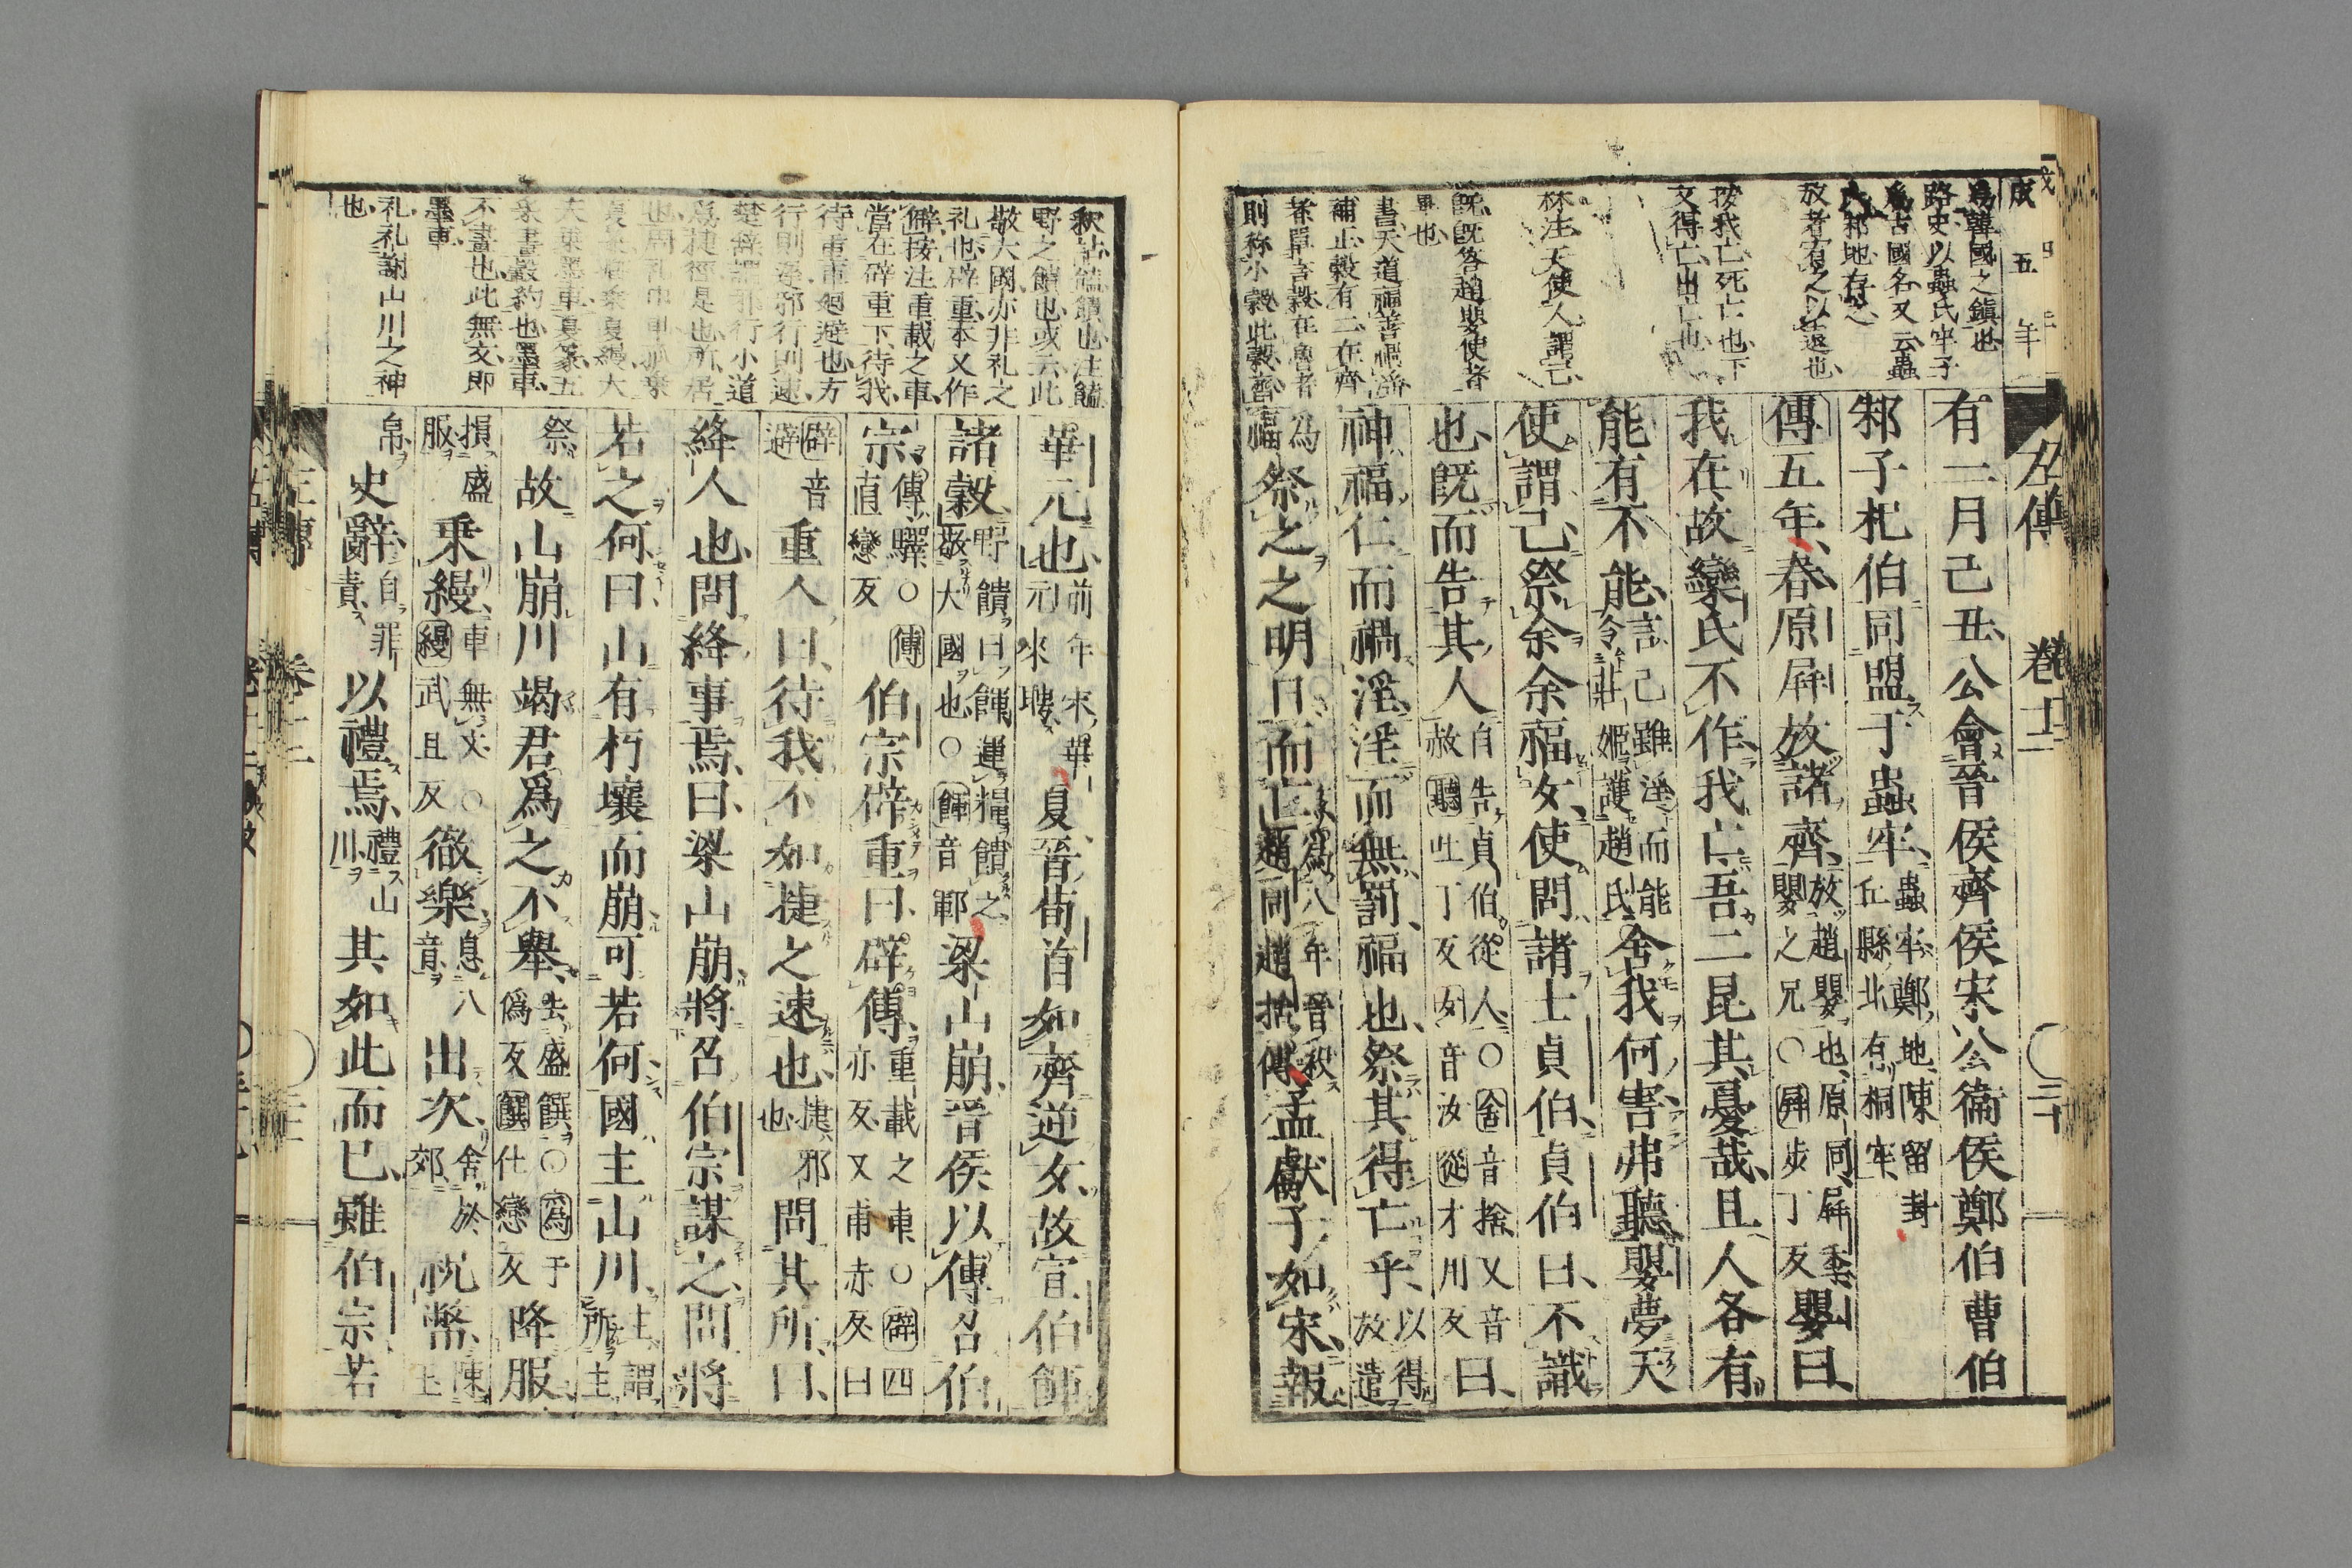 左傳 卷十二 三十
成五年
爲韓國之鎮也
路史以蟲氏牢子
爲古國名又云蟲
放者宥之以遠也
按我亡死亡也下
文得亡出亡也
林注天使人謂己
既既答趙嬰使者
畢也
書天道福善禍淫
補正穀有二在齊
者單言穀在魯者
則称小穀此穀齊
有二月己丑公會晉侯齊侯宋公衞侯鄭伯曹伯
邾子杞伯同盟于蟲牢蟲牢鄭地陳留封丘縣北有桐牢
傳五年春原屏放諸齊放趙嬰也原同屏季嬰之兄○屏步丁反嬰曰
我在故欒氏不作我亡吾二昆其憂哉且人各有
能有不能言己雖淫而能令莊姬護趙氏舍我何害弗聽嬰夢天
使謂己祭余余福女使問諸士貞伯貞伯曰不識
也既而告其人自告貞伯從人○舍音捨又音赦聽吐丁反女音汝從才用反曰
神福仁而禍淫淫而無罰福也祭其得亡乎以得放遣
爲福祭之之明日而亡爲八年晉殺趙同趙括傳孟獻子如宋報
華元也前年宋華元來聘夏晉荀首如齊逆女故宣伯餫
諸穀野饋曰餫運糧饋之敬大國也○餫音鄆梁山崩晉侯以傳召伯
宗傳驛○傳直戀反伯宗辟重曰辟傳重載之車○辟匹亦反又甫赤反曰
辟音避重人曰待我不如捷之速也捷邪也問其所曰
絳人也問絳事焉曰梁山崩將召伯宗謀之問將
若之何曰山有朽壤而崩可若何國主山川主謂所主
祭故山崩川竭君爲之不舉去盛饌○爲于僞反饌仕戀反降服
損盛服乘縵車無文○縵武旦反徹樂息八音出次舍於郊祝幣陳玉
帛史辭自罪責以禮焉禮山川其如此而已雖伯宗若
釈詁饁饋也注饁
野之饋也或云此
敬大國亦非礼之
礼也辟重本又作
僻按注重載之車
當在辟重下待我
待重車廻避也方
行則遲邪行則速
楚辞謂邪行小道
爲捷徑是也所居
夫乘墨車夏篆五
采畫轂約也墨車
不畫也此無文即
墨車
礼礼謝山川之神
也